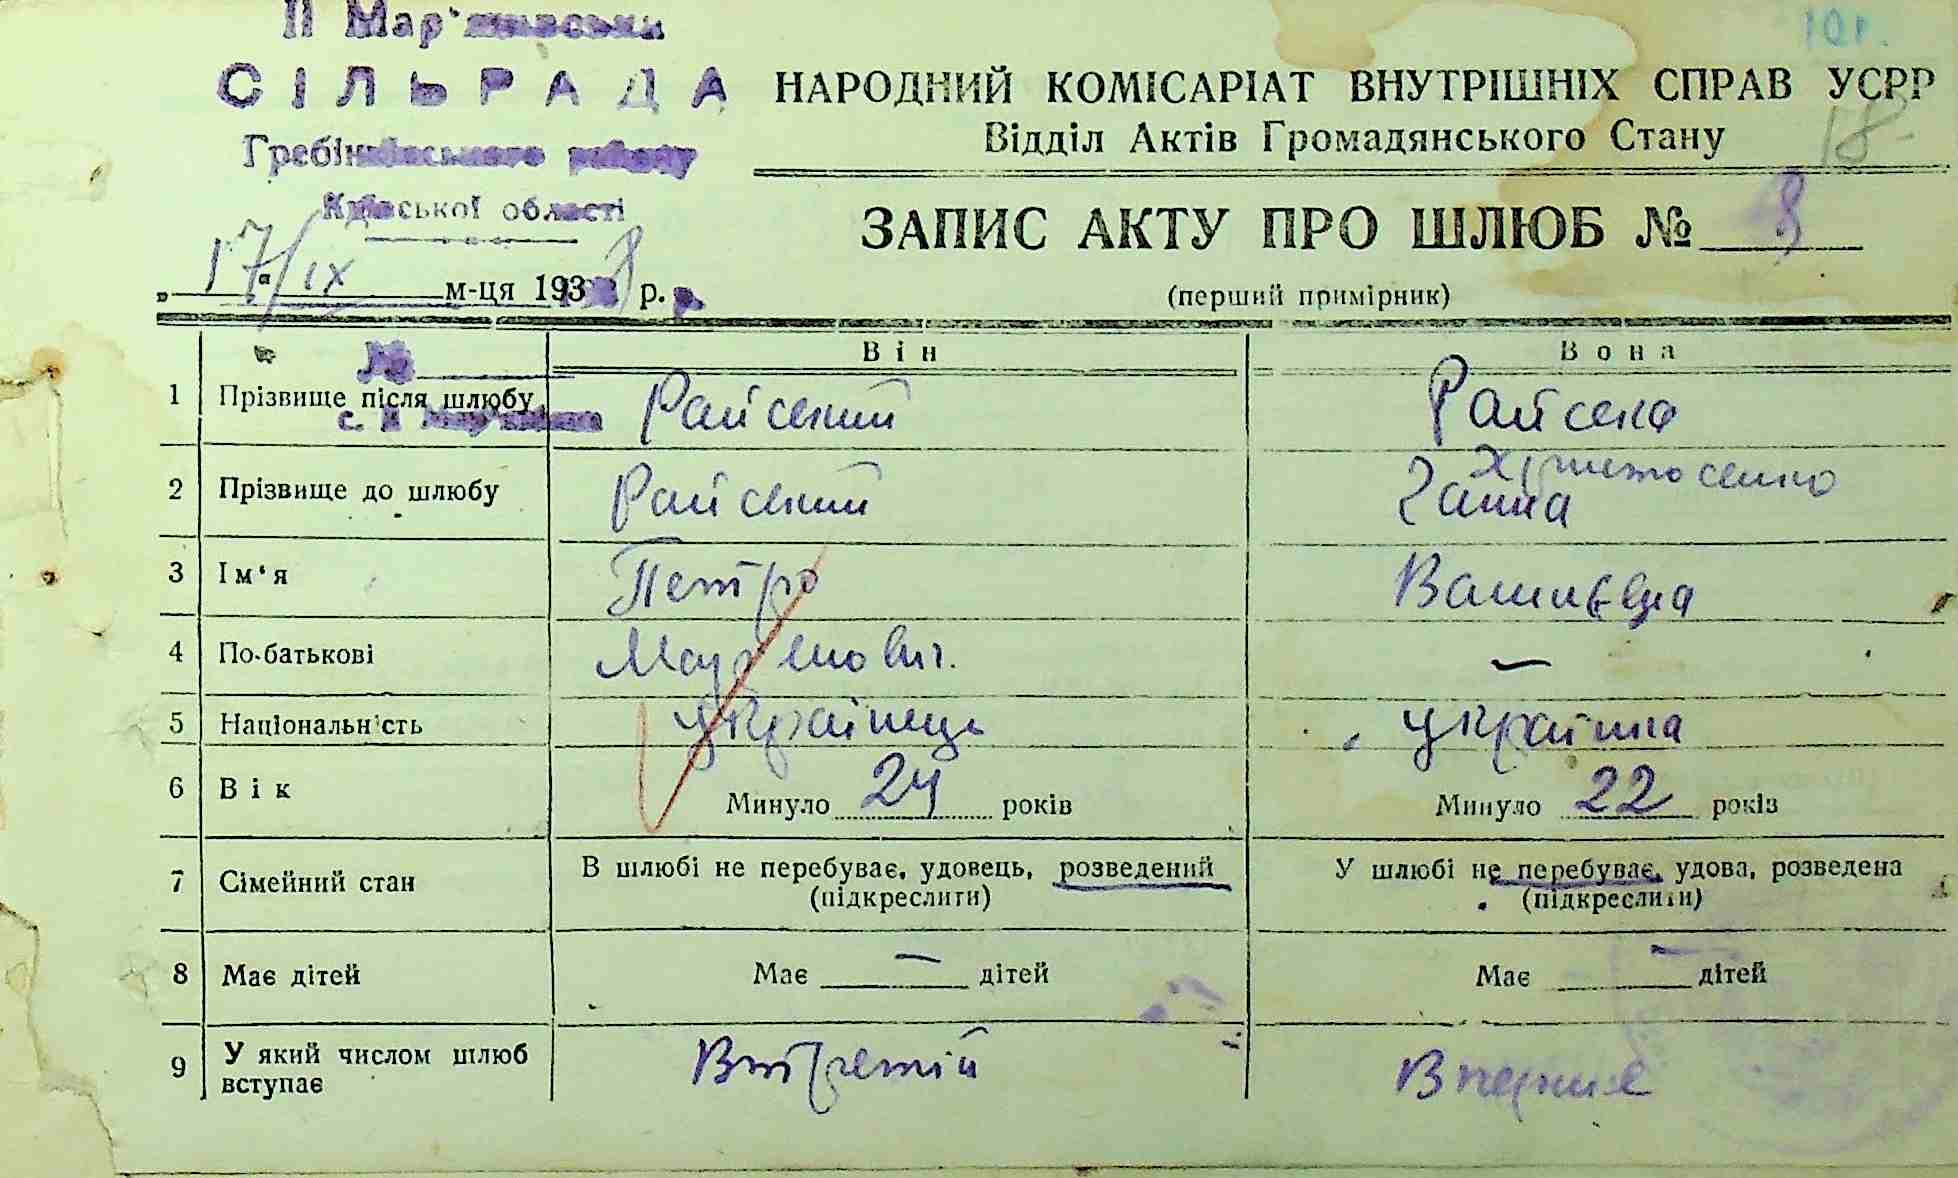 ІІ Мар'янівська
СІЛЬРАДА
Гребінківського району
Київської області
10г.
НАРОДНИЙ КОМІСАРІАТ ВНУТРІШНІХ СПРАВ УСРР
Відділ Актів Громадянського Стану
18
ЗАПИС АКТУ ПРО ШЛЮБ № 8
(перший примірник)
„17" ІХ м-ця 1938 р.
№
Він Вона
1 Прізвище після шлюбу Райський Райська
с. ІІ Мар'янівка
2 Прізвище до шлюбу Райський Ганна
3 Ім'я Петро Василівна
4 По-батькові —
5 Національність Українець Українка
6 Вік Минуло 24 років Минуло 22 років
7 Сімейний стан В шлюбі не перебуває, удовець, розведений У шлюбі не перебуває, удова, розведена
(підкреслити) (підкреслити)
8 Має дітей Має — дітей Має — дітей
9 У який числом шлюб вступає Втретій Вперше